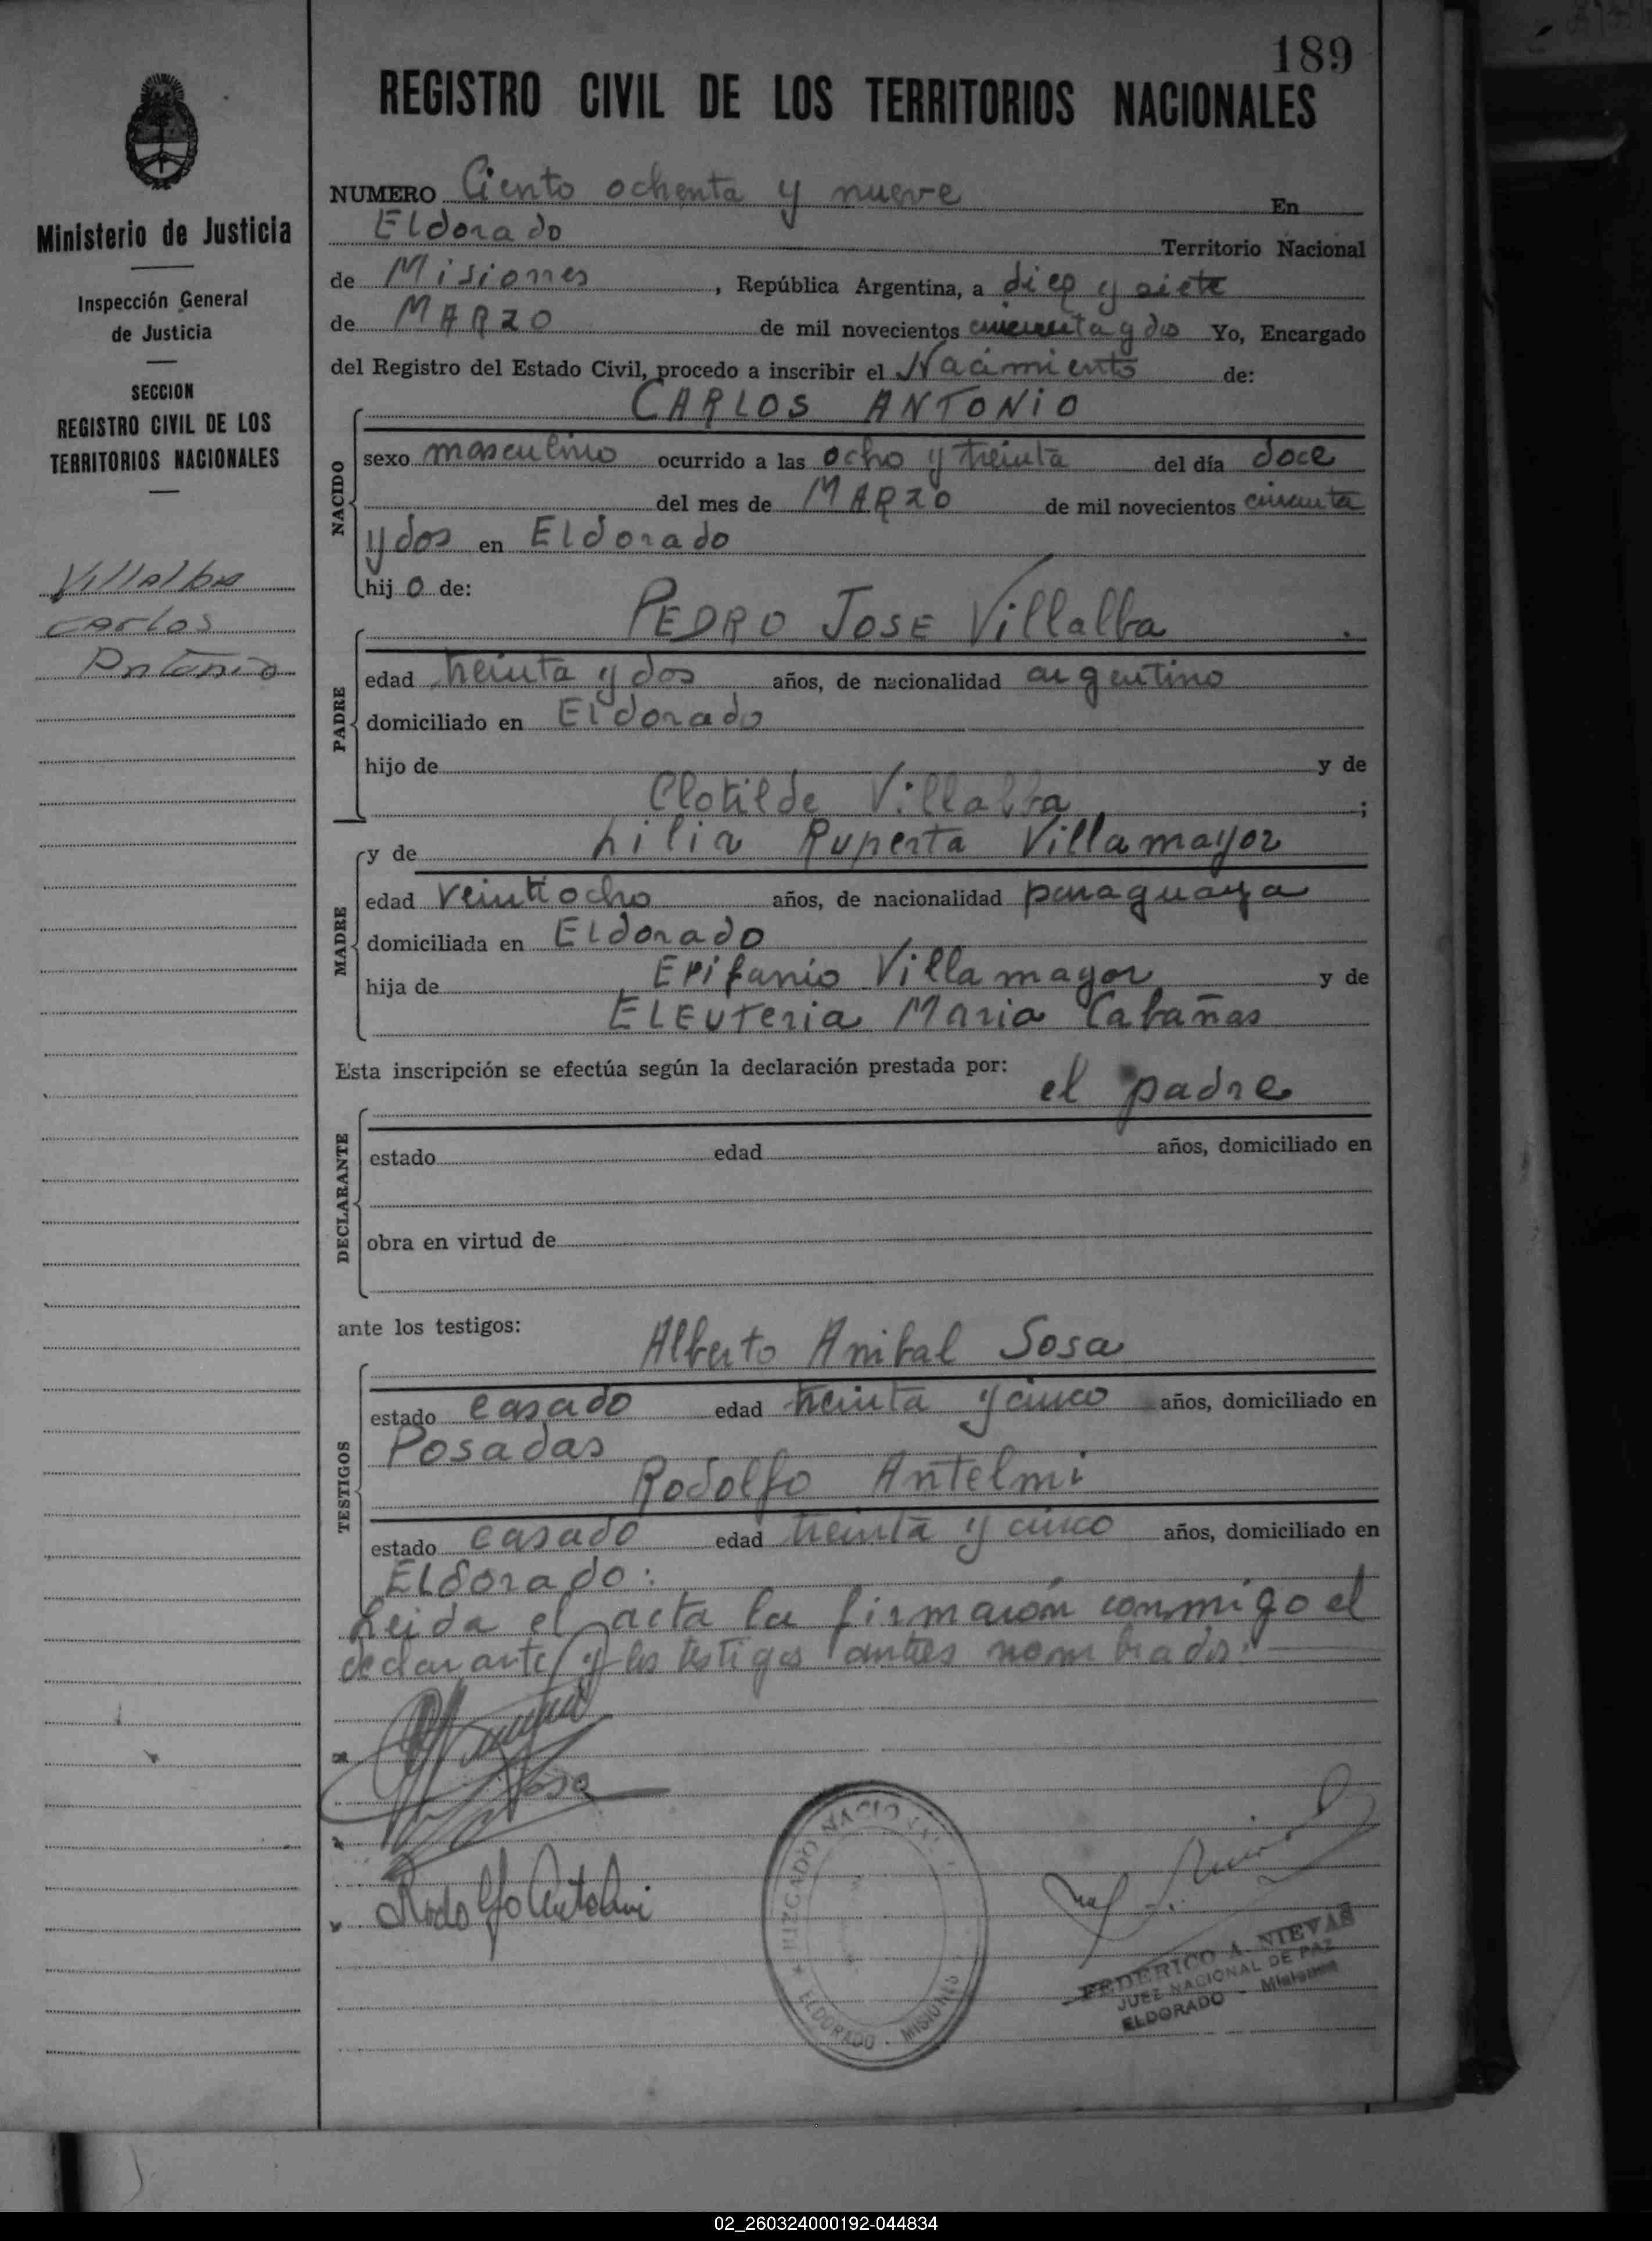 189
REGISTRO CIVIL DE LOS TERRITORIOS NACIONALES
Ministerio de Justicia
Inspección General
de Justicia
SECCION
REGISTRO CIVIL DE LOS
TERRITORIOS NACIONALES
Villalba
Carlos
Antonio
NUMERO Ciento ochenta y nueve En
Eldorado Territorio Nacional
de Misiones, República Argentina, a diez y siete
de MARZO de mil novecientos cincuenta y dos Yo, Encargado
del Registro del Estado Civil, procedo a inscribir el Nacimiento de:
NACIDO
CARLOS ANTONIO
sexo masculino ocurrido a las ocho y treinta del día doce
del mes de MARZO de mil novecientos cincuenta
y dos en Eldorado
hijo de:
PADRE
PEDRO JOSE Villalba
edad treinta y dos años, de nacionalidad argentino
domiciliado en Eldorado
hijo de y de
Clotilde Villalba;
MADRE
y de Lilia Ruperta Villamayor
edad veintiocho años, de nacionalidad paraguaya
domiciliada en Eldorado
hija de Epifanio Villamayor y de
ELEUTeria Maria Cabañas
Esta inscripción se efectúa según la declaración prestada por:
DECLARANTE
el padre
estado edad años, domiciliado en
obra en virtud de
ante los testigos:
TESTIGOS
Alberto Anibal Sosa
estado casado edad treinta y cinco años, domiciliado en
Posadas
Rodolfo Antelmi
estado casado edad treinta y cinco años, domiciliado en
Eldorado:
Leida el acta la firmaron conmigo el
declarante y los testigos antes nombrados.
Sosa
Rodolfo Antelmi
JUZGADO NACIONAL
ELDORADO - MISIONES
FEDERICO A. NIEVAS
JUEZ NACIONAL DE PAZ
ELDORADO - Misiones
02_260324000192-044834